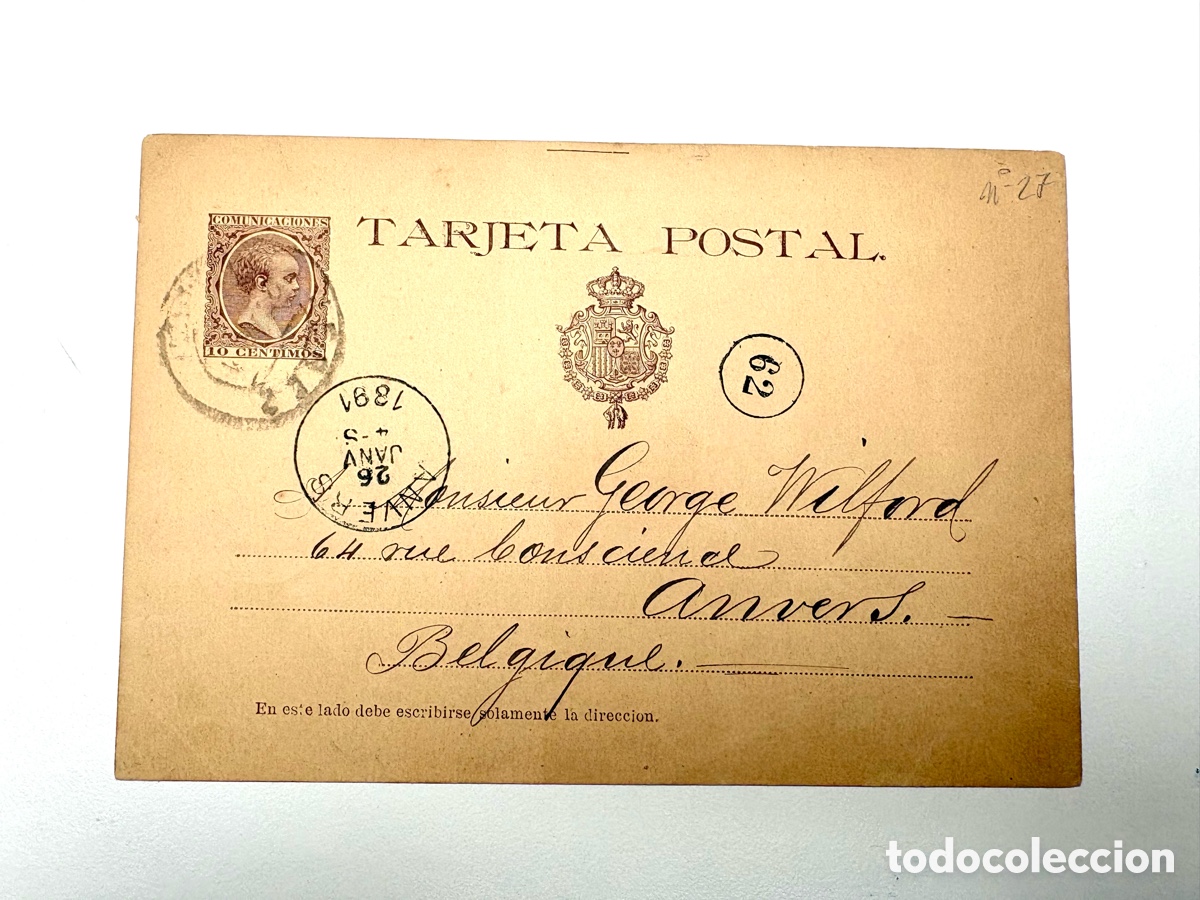 nº 27
COMUNICACIONES
10 CENTIMOS
TARJETA POSTAL.
62
ANVERS
26
JANV
4-5
1891
Monsieur George Wilford
64 rue Conscience
Anvers.
Belgique.
En este lado debe escribirse solamente la direccion.
todocoleccion